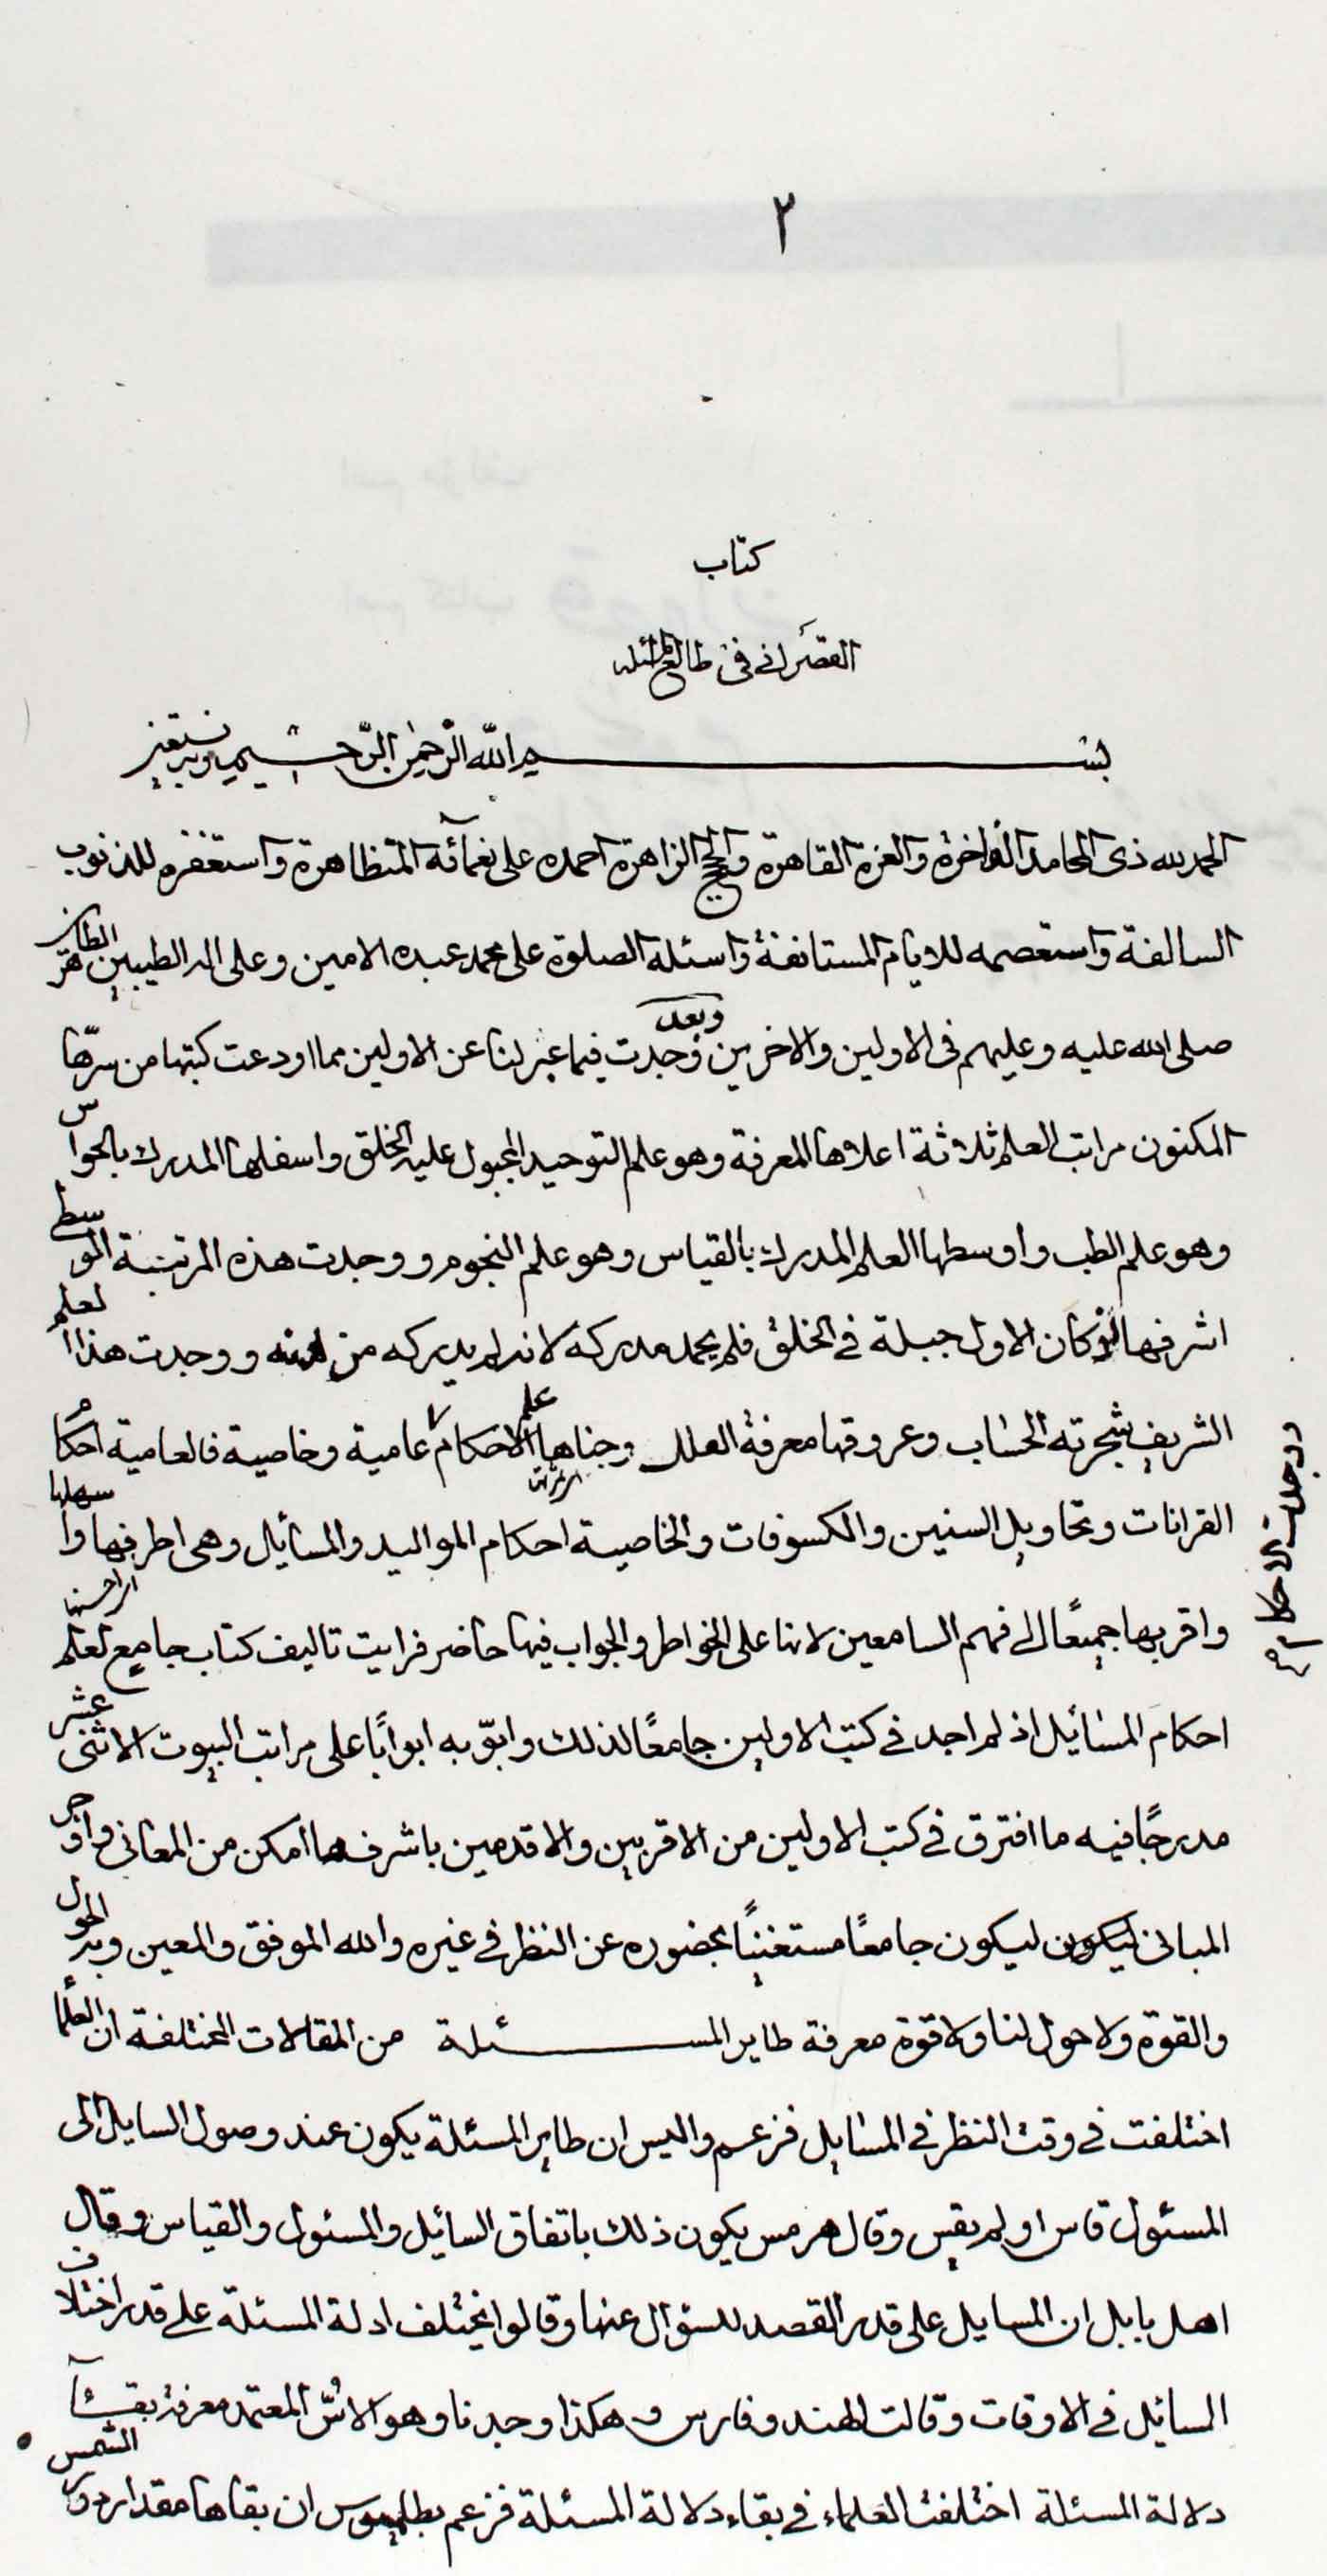 ٢
كتاب
القصرانى فى طالع المسئله
بسم الله الرحمن الرحيم وبه نستعين
الحمد لله ذى المحامد الفاخرة والعزة القاهرة والحجج الزاهرة احمده على نعمآئه المتظاهرة واستغفره للذنوب
السالفة واستعصمه للايام المستانفة واسئله الصلوة على محمد عبده الامين وعلى اله الطيبين الطاهرين
صلى الله عليه وعليهم فى الاولين والاخرين وبعد وجدت فيما عبر لنا عن الاولين مما اودعت كتبها من سرّها
المكنون مراتب العلم ثلاثة اعلاها المعرفة وهو علم التوحيد المجبول عليه الخلق واسفلها المدرك بالحواس
وهو علم الطب واوسطها العلم المدرك بالقياس وهو علم النجوم ووجدت هذه المرتبة الوسطى
اشرفها اذ كان الاول جبلة فى الخلق فلم يحمد مدركه لانه لم يدركه من ووجدت هذا العلم
الشريف شجرته الحساب وعروقها معرفة العلل وجناها علم الاحكام عامية وخاصية فالعامية احكام
ووجدت الاحكام
القرانات وتحاويل السنين والكسوفات والخاصية احكام المواليد والمسائيل وهى اطرفها واسهلها
واقربها جميعًا الى فهم السامعين لانها على الخواطر والجواب فيها حاضر فرايت تاليف كتاب جامع لعلم
احكام المسائيل اذ لم اجد فى كتب الاولين جامعًا لذلك وابوّبه ابوابًا على مراتب البيوت الاثنى عشر
مدرجًا فيه ما افترق فى كتب الاولين من الاقربين والاقدمين باشرف ما امكن من المعانى واوجز
المبانى ليكون ليكون جامعًا مستغنيًا بحضوره عن النظر فى غيره والله الموفق والمعين وبه الحول
والقوة ولا حول لنا ولا قوة معرفة طاير المسئلة من المقالات المختلفة ان العلما
اختلفت فى وقت النظر فى المسايل فزعم واليس ان طاير المسئلة يكون عند وصول السايل الى
المسئول قاس او لم يقس وقال هرمس يكون ذلك باتفاق السائيل والمسئول والقياس وقال
اهل بابل ان المسايل على قدر القصد للسؤال عنها وقالوا يختلف ادلة المسئلة على قدر اختلاف
السائيل فى الاوقات وقالت الهند وفارس وهكذا وجدنا وهو الاسّ المعتمد معرفة بقآء
دلالة المسئلة اختلفت العلماء فى بقاء دلالة المسئلة فزعم بطلميوس ان بقاها مقدار دور الشمس